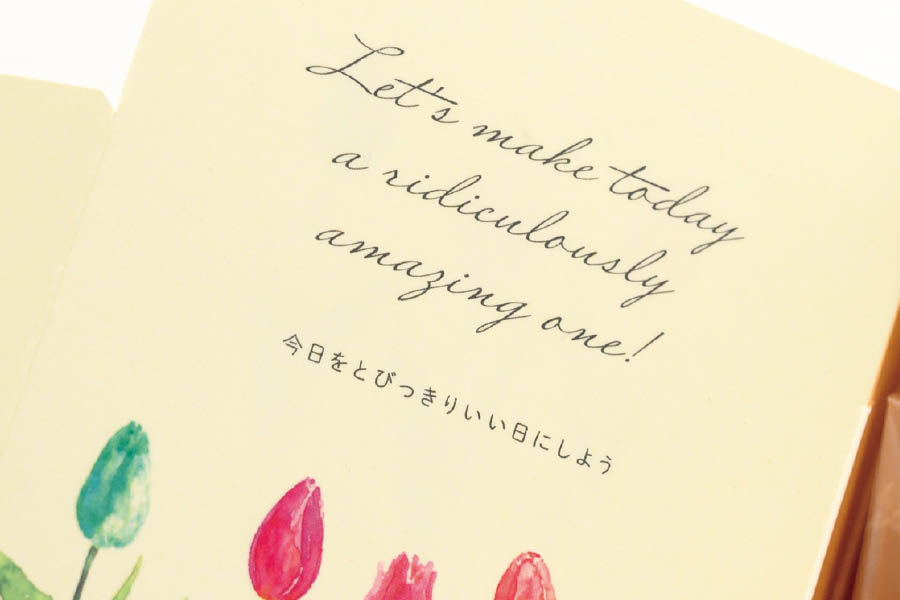 Let's make today
a ridiculously
amazing one!
今日をとびっきりいい日にしよう